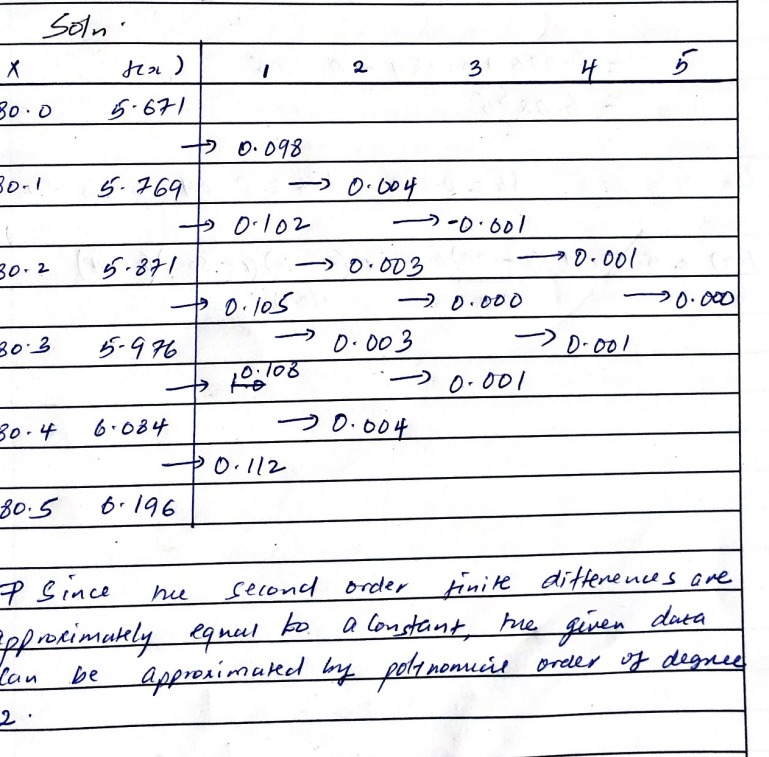 Soln.
x f(x) 1 2 3 4 5
80.0 5.671
→ 0.098
80.1 5.769 → 0.004
→ 0.102 → -0.001
80.2 5.871 → 0.003 → 0.001
→ 0.105 → 0.000 → 0.000
80.3 5.976 → 0.003 → 0.001
→ 0.108 → 0.001
80.4 6.084 → 0.004
→ 0.112
80.5 6.196
Since the second order finite differences are
approximately equal to a constant, the given data
can be approximated by polynomial order of degree
2.